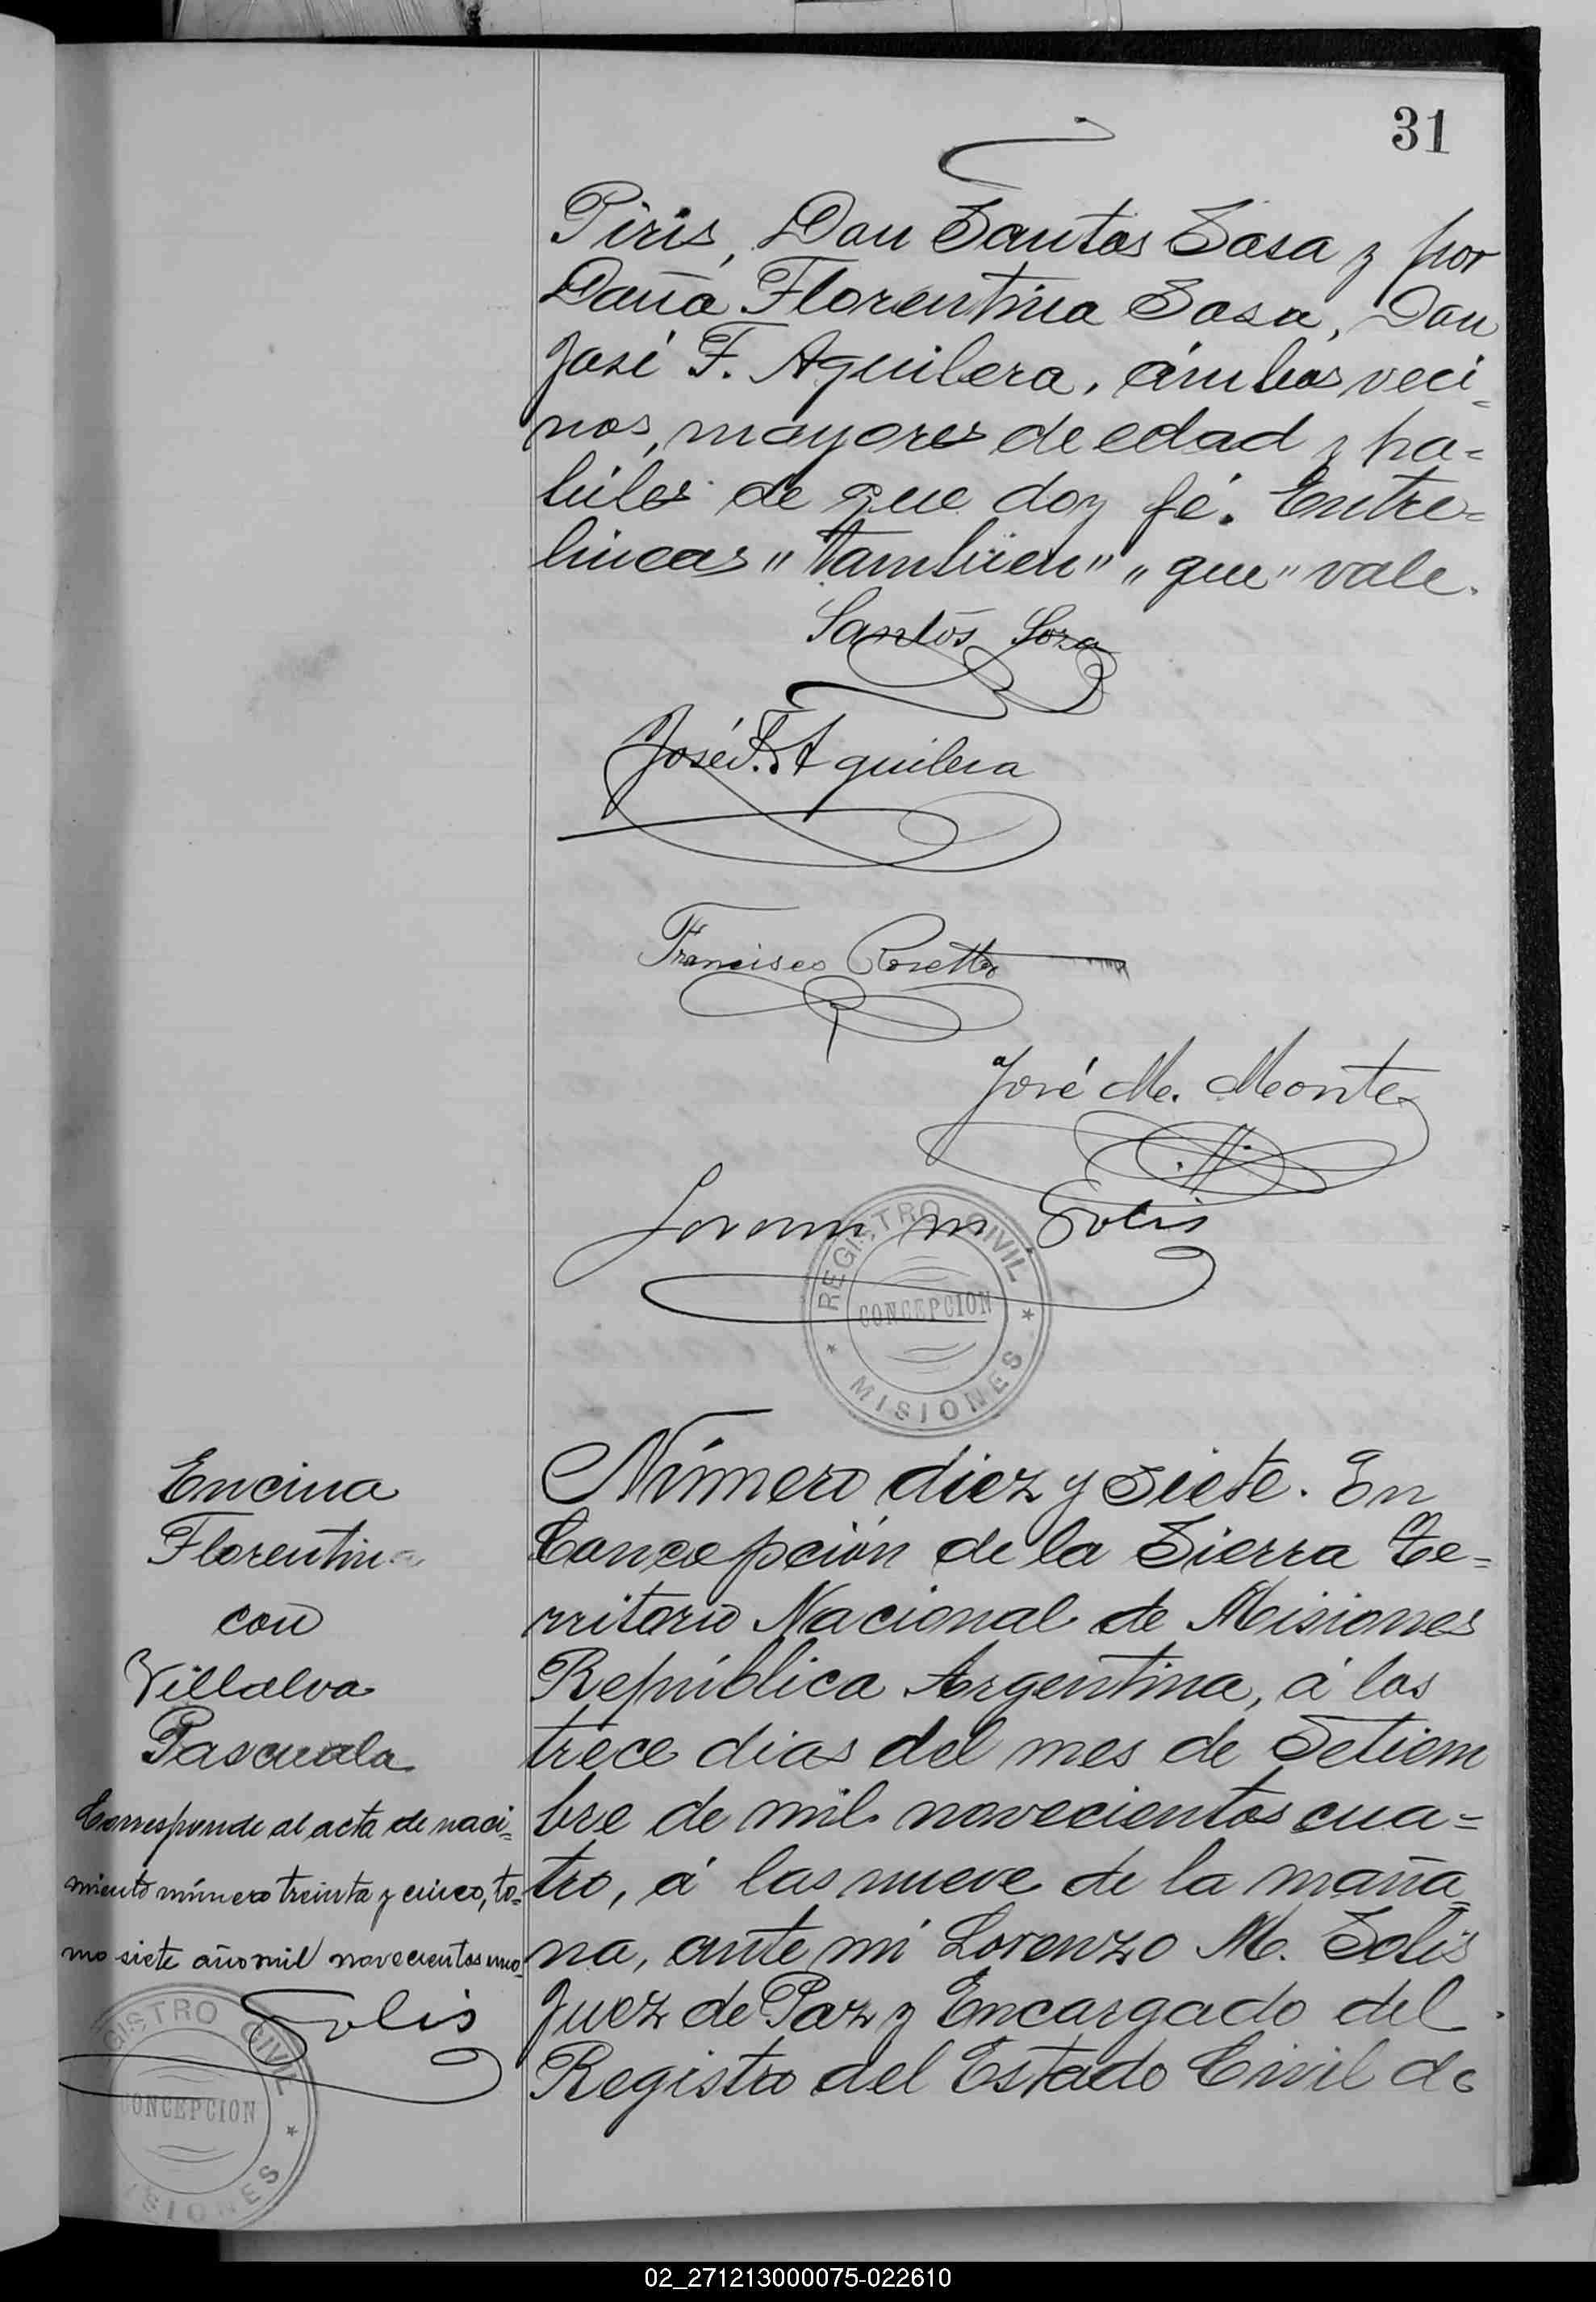 31
Piris, Don Santos Sosa y por
Doña Florentina Sosa, Don
José F. Aguilera, ámbos veci=
nos, mayores de edad y ha=
biles de que doy fé. Entre=
lineas "tambien" "que" vale.
Santos Soza
José F. Aguilera
Francisco Rosetto
José M. Montes
Lorenzo M. Solis
REGISTRO CIVIL
CONCEPCION
MISIONES
Encina
Florentina
con
Villalva
Pascuala
Corresponde al acta de naci=
miento número treinta y cinco, to=
mo siete año mil novecientos uno=
Solis
REGISTRO CIVIL
CONCEPCION
MISIONES
Número diez y siete. En
Concepción de la Sierra Te=
rritorio Nacional de Misiones
República Argentina, á los
trece dias del mes de Setiem
bre de mil novecientos cua=
tro, á las nueve de la maña=
na, ante mi Lorenzo M. Solis
Juez de Paz y Encargado del
Registro del Estado Civil de
02_271213000075-022610